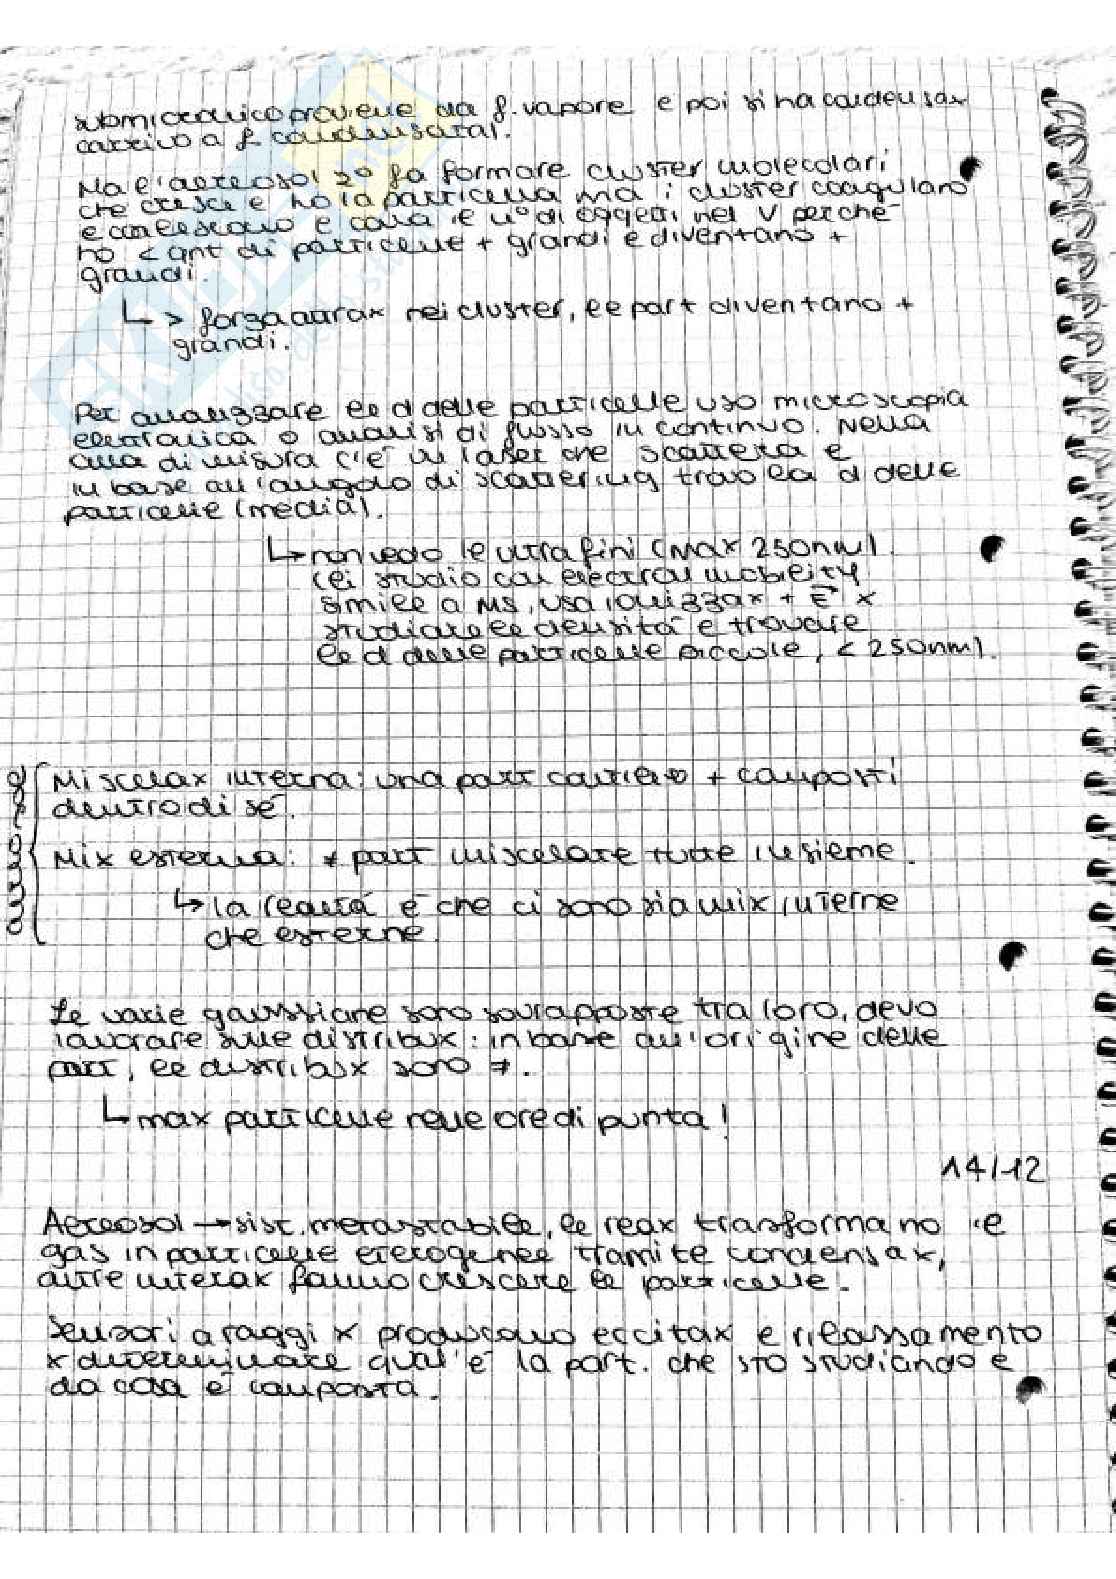 submicronico proviene da f. vapore e poi si ha condensax
arrivo a f. condensata).
Ma l'aereosol 2° fa formare cluster molecolari
che cresce e ho la particella ma i cluster coagulano
e crescono e cala il n° di oggetti nel V perché
ho < qnt di particelle + grandi e diventano +
grandi.
↳ > forza attrax nei cluster, le part diventano +
grandi.
Per analizzare le d delle particelle uso microscopia
elettronica o analisi di flusso in continuo. Nella
cella di misura c'è un laser che scattera e
in base all'angolo di scattering trovo la d delle
particelle (media).
↳ non vedo le ultrafini (max 250nm)
lei studio con electral mobility
simile a MS, usa ionizzax + E⃗ x
studiare le densità e trovare
le d delle particelle piccole, < 250nm).
Miscelax interna: una part contiene + composti
dentro di sé.
Mix esterna: ≠ part miscelate tutte insieme.
↳ la realtà è che ci sono sia mix interne
che esterne.
Le varie gaussiane sono sovrapposte tra loro, devo
lavorare sulle distribux: in base all'origine delle
part, le distribux sono ≠.
↳ max particelle nelle ore di punta!
14/12
Aereosol → sist. metastabile, le reax trasformano il
gas in particelle eterogenee tramite condensax,
altre interax fanno crescere le particelle.
Sensori a raggi x producono eccitax e rilassamento
x determinare qual è la part. che sto studiando e
da cosa è composta.